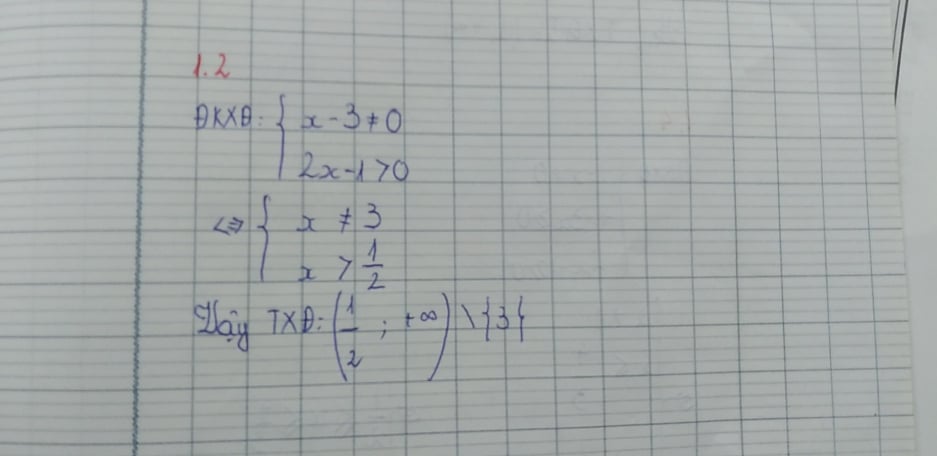 1.2
ĐKXĐ: { x - 3 ≠ 0
2x - 1 > 0
<=> { x ≠ 3
x > 1/2
Vậy TXĐ: (1/2 ; +∞) \ {3{